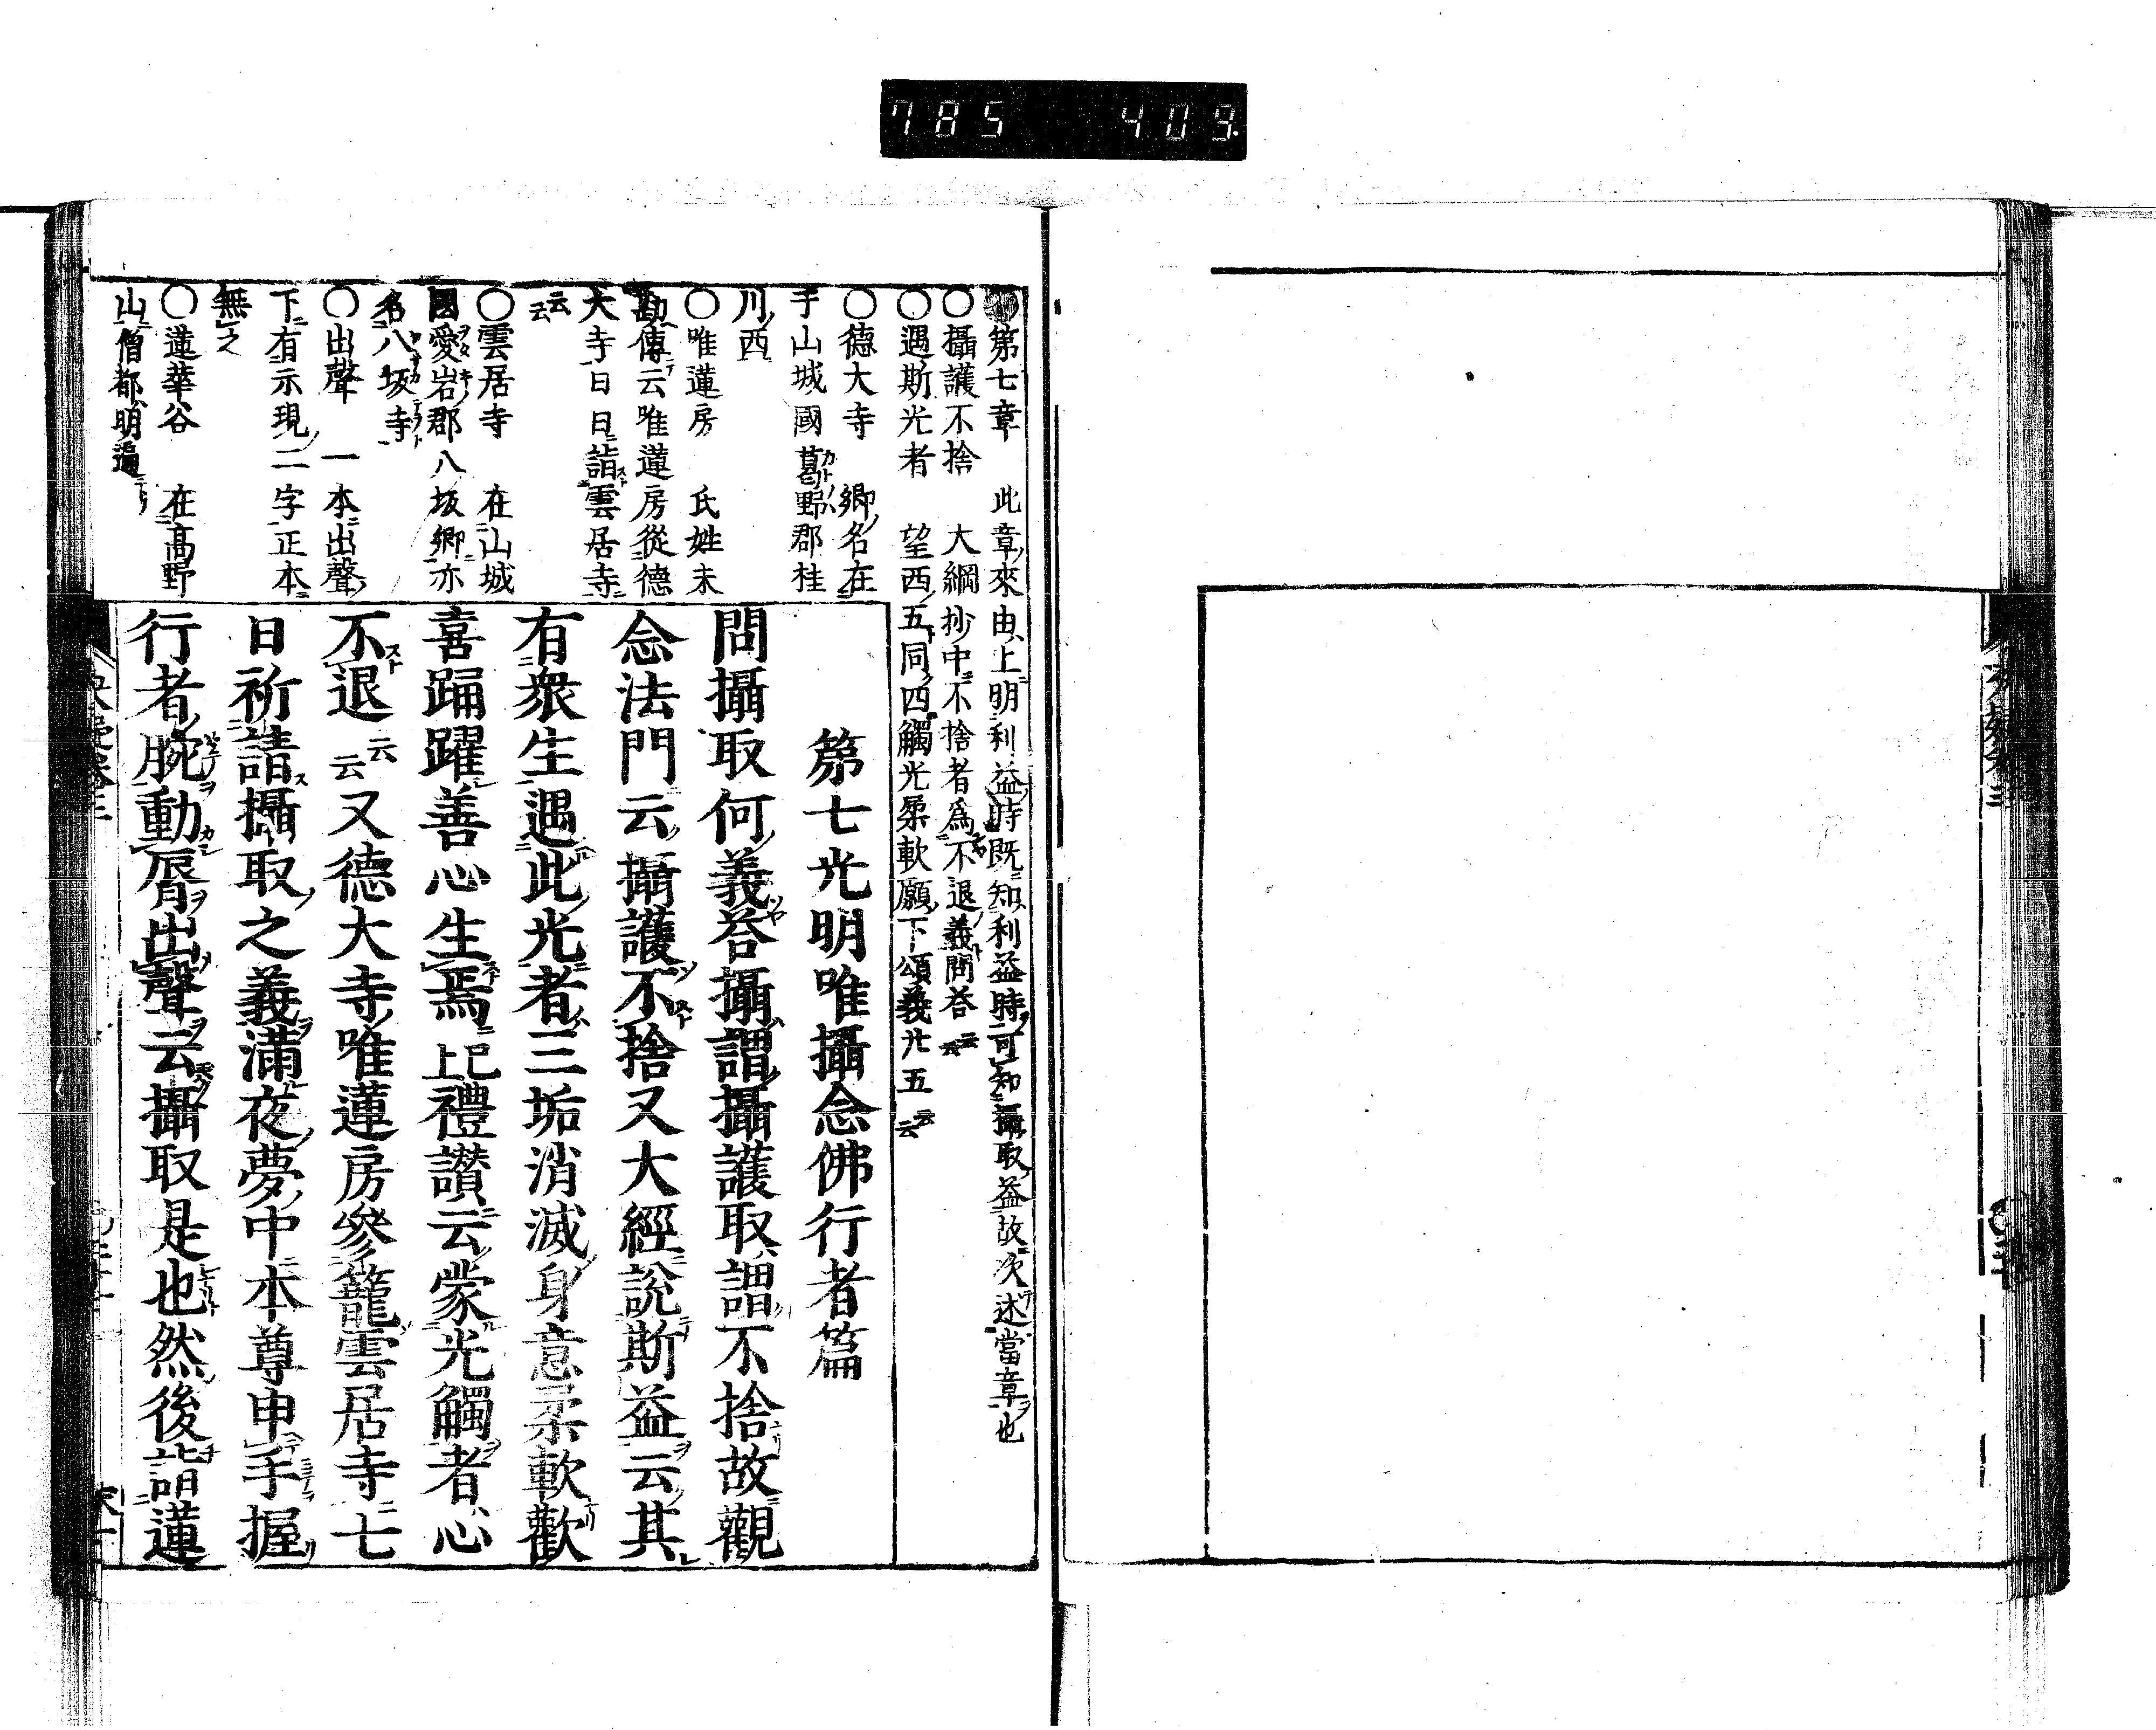 785 409
〇第七章 此章來由上明利益時既知利益時可知攝取益故次述當章也
〇攝護不捨 大綱抄中不捨者爲不退義問荅云云
〇遇斯光者 望西五同四觸光柔軟願下頌義廿五云云
〇德大寺 鄉名在
于山城國葛野郡桂
川西
〇唯蓮房 氏姓未
勘傳云唯蓮房從德
大寺日日詣雲居寺
云云
〇雲居寺 在山城
國愛宕郡八坂鄉亦
名八坂寺
〇出聲 一本出聲
下有示現二字正本
無之
〇蓮華谷 在高野
山僧都明遍
第七光明唯攝念佛行者篇
問攝取何義荅攝謂攝護取謂不捨故觀
念法門云攝護不捨又大經說斯益云其
有衆生遇此光者三垢消滅身意柔軟歡
喜踊躍善心生焉已上禮讃云蒙光觸者心
不退云云又德大寺唯蓮房參籠雲居寺七
日祈請攝取之義滿夜夢中本尊申手握
行者腕動脣出聲云攝取是也然後詣蓮